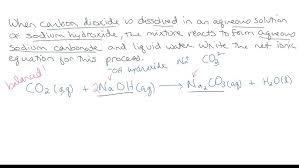 When carbon dioxide is dissolved in an aqueous solution
of sodium hydroxide, the mixture reacts to form aqueous
sodium carbonate and liquid water. Write the net ionic
equation for this process.
balanced! OH⁻ hydroxide Na⁺ CO₃²⁻
CO₂(g) + 2NaOH(aq) → Na₂CO₃(aq) + H₂O(l)